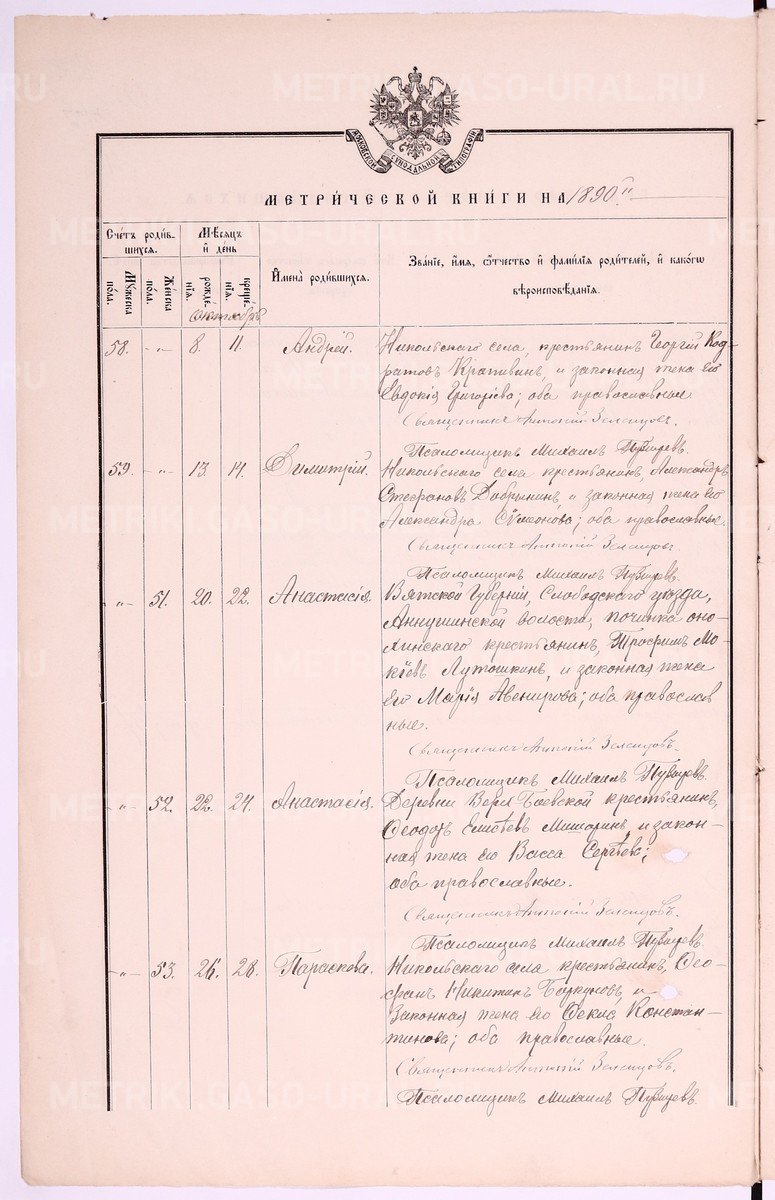 METRIK.GASO-URAL.RU
МОСКОВСКОЙ СѴНОДАЛЬНОЙ ТИПОГРАФІИ
МЕТРИЧЕСКОЙ КНИГИ НА 1890 г.
Счетъ родив-
шихся.
Мѣсяцъ
и день
Имена родившихся.
Званіе, имя, отчество и фамилія родителей, и какого
вѣроисповѣданія.
Мужеска пола.
Женска пола.
рожде-
нія.
креще-
нія.
октябрь
58. -"- 8. 11. Андрій. Никольскаго села, крестьянинъ Георгій Код-
ратовъ Крапивинъ, и законная жена его
Евдокія Григоріева; оба православные
Священникъ Антоній Зеленцовъ.
Псаломщикъ Михаилъ
59. -"- 13. 14. Димитрій. Никольскаго села крестьянинъ, Александръ
Стефановъ Добрынинъ и законная жена его
Александра Сѵмеонова; оба православные.
Священникъ Антоній Зеленцовъ
Псаломщикъ Михаилъ
-"- 51. 20. 22. Анастасія. Вятской Губерніи, Слободскаго уѣзда,
волости, починка
крестьянинъ, Трофимъ Мо-
кіевъ Лутошкинъ, и законная жена
его Марія Авенирова; оба православ
ные.
Священникъ Антоній Зеленцовъ.
Псаломщикъ Михаилъ
-"- 52. 22. 24. Анастасія. Деревни Верхъ Боевской крестьянинъ,
Ѳеодотъ Мишаринъ и закон-
ная жена его Васса Сергѣева;
оба православные.
Священникъ Антоній Зеленцовъ.
Псаломщикъ Михаилъ
-"- 53. 26. 28. Параскова. Никольскаго села крестьянинъ, Ѳео-
фанъ Никитинъ и
Законная жена его Ѳекла Констан-
тинова; оба православные.
Священникъ Антоній Зеленцовъ.
Псаломщикъ Михаилъ